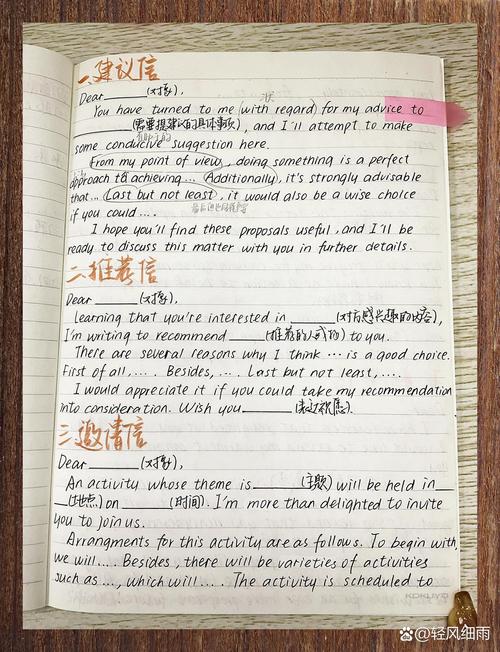 一、建议信
Dear ______ (对象),
You have turned to me (with regard) for my advice to
______ (需要提建议的具体事项), and I'll attempt to make
some conducive suggestion here.
From my point of view, doing something is a perfect
approach to achieving... Additionally, it's strongly advisable
that... Last but not least, it would also be a wise choice
if you could ....
I hope you'll find these proposals useful, and I'll be
ready to discuss this matter with you in further details.
二、推荐信
Dear ______ (对象),
Learning that you're interested in ______ (对方感兴趣的内容),
I'm writing to recommend ______ (推荐的人或物) to you.
There are several reasons why I think ... is a good choice.
First of all, .... Besides, .... Last but not least, ....
I would appreciate it if you could take my recommendation
into consideration. Wish you ______ (表达祝愿).
三、邀请信
Dear ______ (对象),
An activity whose theme is ______ (主题) will be held in ___
___ (地点) on ______ (时间). I'm more than delighted to invite
you to join us.
Arrangments for this activity are as follows. To begin with,
we will.... Besides, there will be varieties of activities
such as ..., which will .... The activity is scheduled to
KOKUYO
百家号/轻风细雨